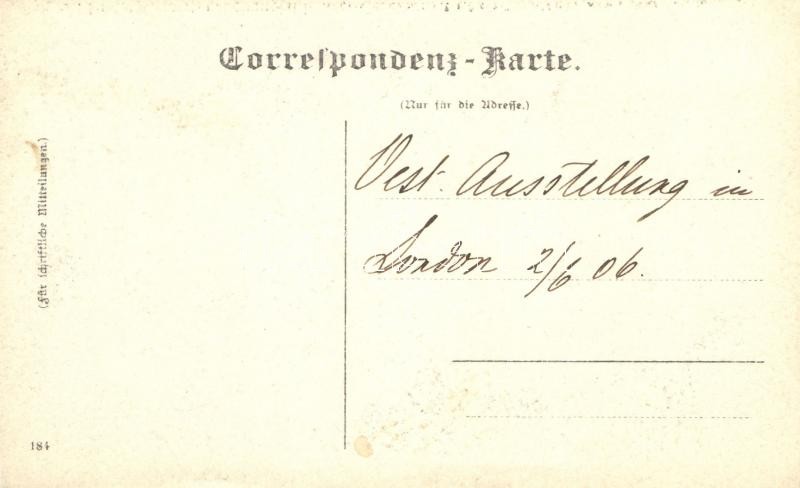 Correspondenz-Karte.
(Nur für die Adresse.)
(Für schriftliche Mitteilungen.)
Oest. Ausstellung in
London 2/6 06.
184